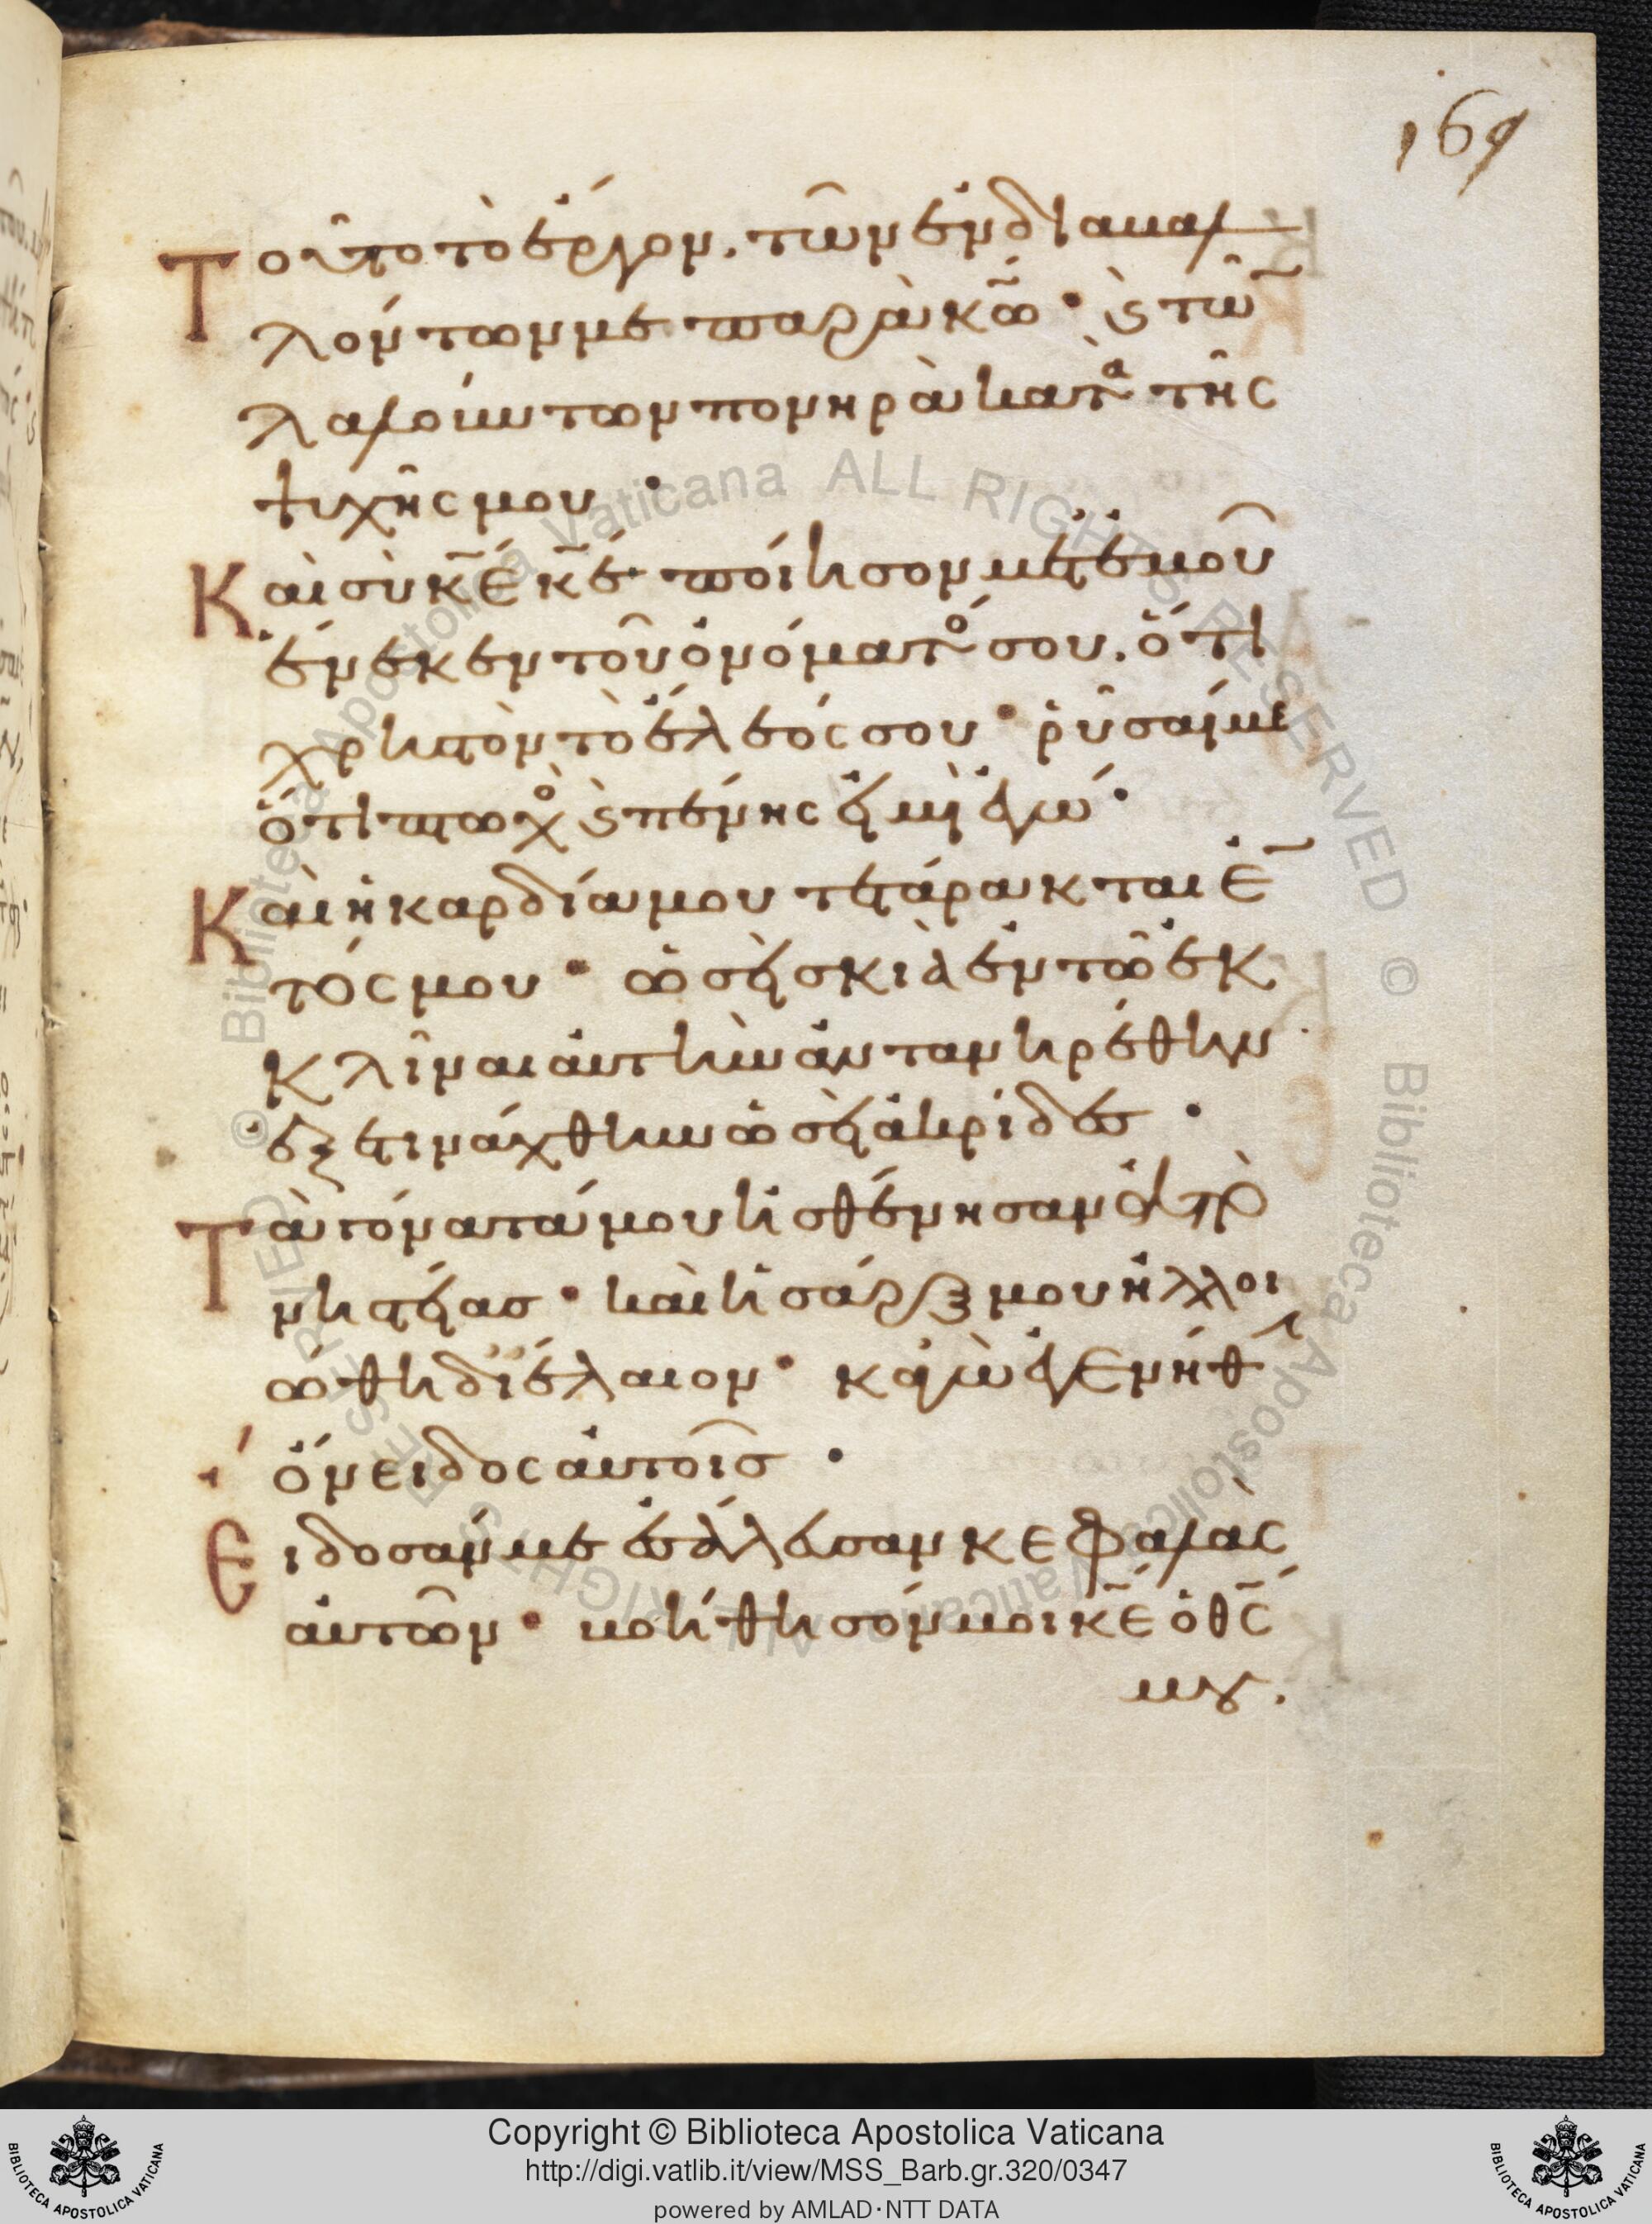 169
Τοῦτο τὸ ἔργον. τῶν ἐνδιαβαλ
λόντων με παρὰ κ̅ω̅ · ϗ τῶ̅
λαλούντων πονηρὰ κατὰ τῆς
ψυχῆς μου ·
Καὶ σὺ κ̅ε̅ κ̅ε̅ ποίησον μετ' ἐμοῦ
ἕνεκεν τοῦ ὀνόματο σου. ὅτι
χρηστὸν τὸ ἔλεός σου · ῥῦσαί με
ὅτι πτωχὸ ϗ πένης εἰμὶ ἐγώ ·
Καὶ ἡ καρδία μου τετάρακται ἐ̅
τός μου · ὡσεὶ σκιὰ ἐν τῶ ἐκ
κλῖναι αὐτὴν ἀντανηρέθην
ἐξετινάχθην ὡσεὶ ἀκρίδες ·
Τὰ γόνατά μου ἠσθένησαν ἀπὸ
νηστείας · καὶ ἡ σάρξ μου ἠλλοι
ώθη δϊ έλαιον · κἀγὼ ἐγενήθ
ὄνειδος αὐτοῖς ·
Εἴδοσάν με ἐσάλευσαν κεφαλὰς
αὐτῶν · βοήθησόν μοι κ̅ε̅ ὁ θ̅ς̅
μου.
© Biblioteca Apostolica Vaticana ALL RIGHTS RESERVED © Biblioteca Apostolica Vaticana ALL RIGHTS RESERVED
Copyright © Biblioteca Apostolica Vaticana
http://digi.vatlib.it/view/MSS_Barb.gr.320/0347
powered by AMLAD·NTT DATA
BIBLIOTECA APOSTOLICA VATICANA
BIBLIOTECA APOSTOLICA VATICANA